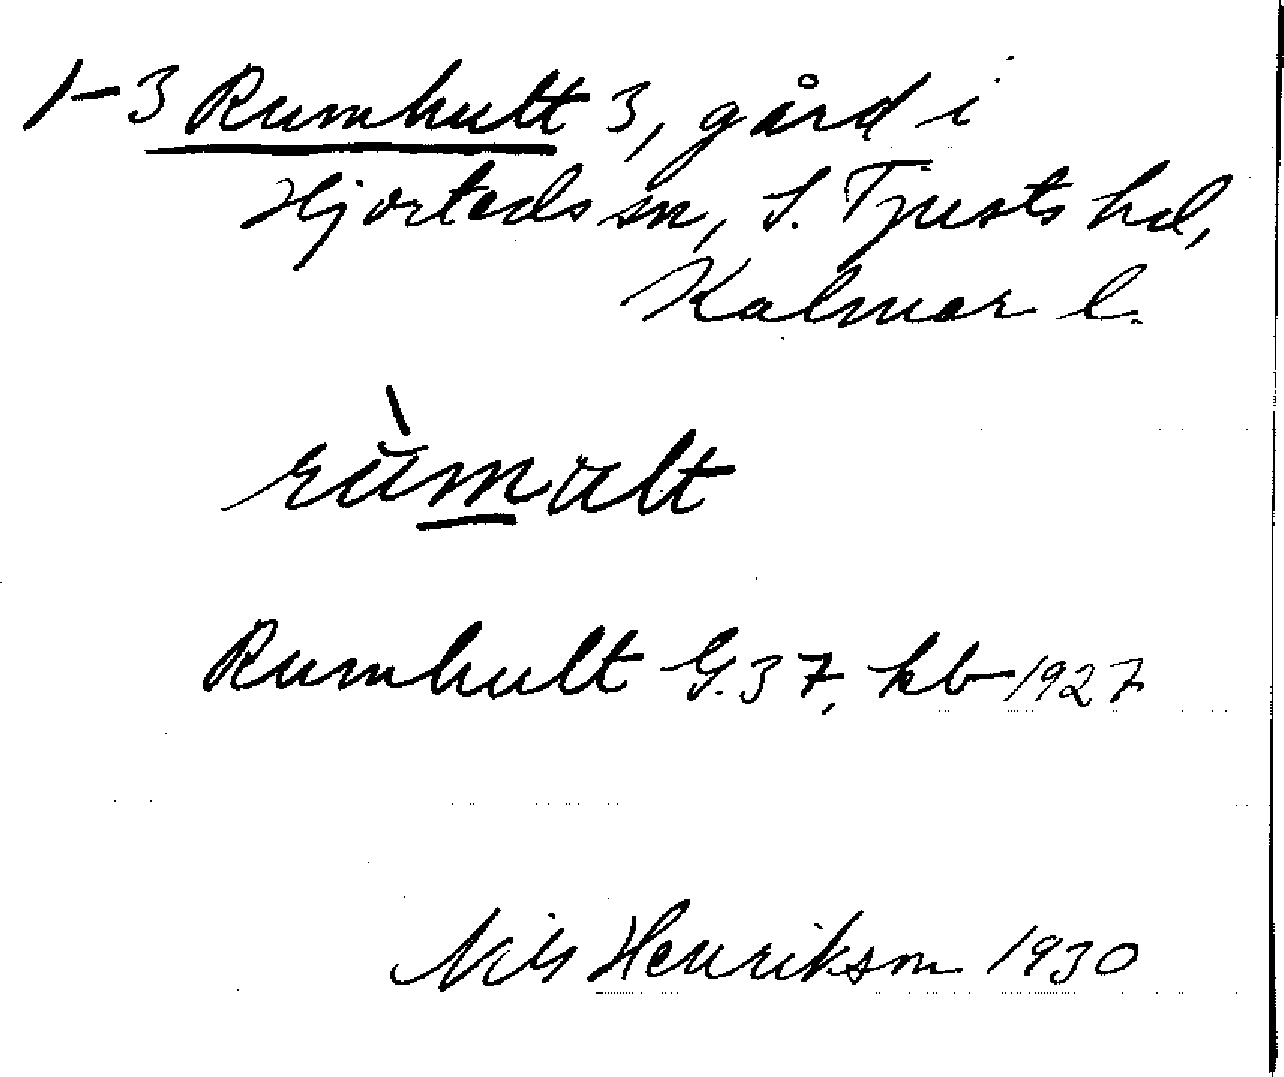 1-3 Rumhult 3, gård i
Hjorteds sn, S. Tjusts hd,
Kalmar l.
rùmult
Rumhult G.37, kb 1927
Nils Henrikson 1930